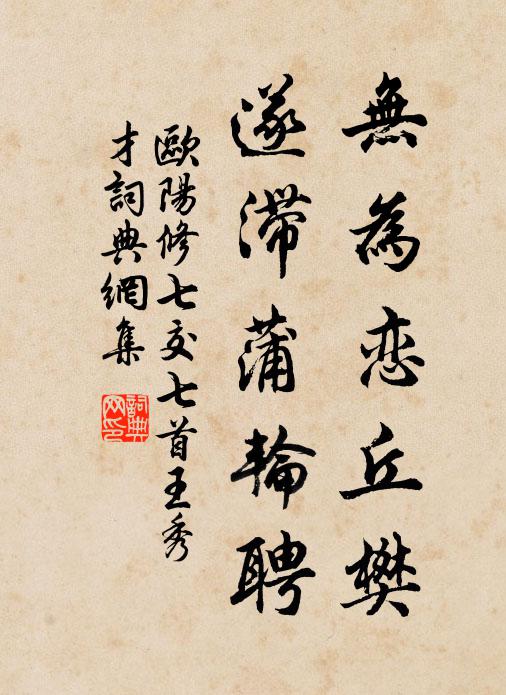 無為恋丘樊
遂滞蒲輪聘
歐陽修七交七首王秀
才詞典網集
詞典
网印